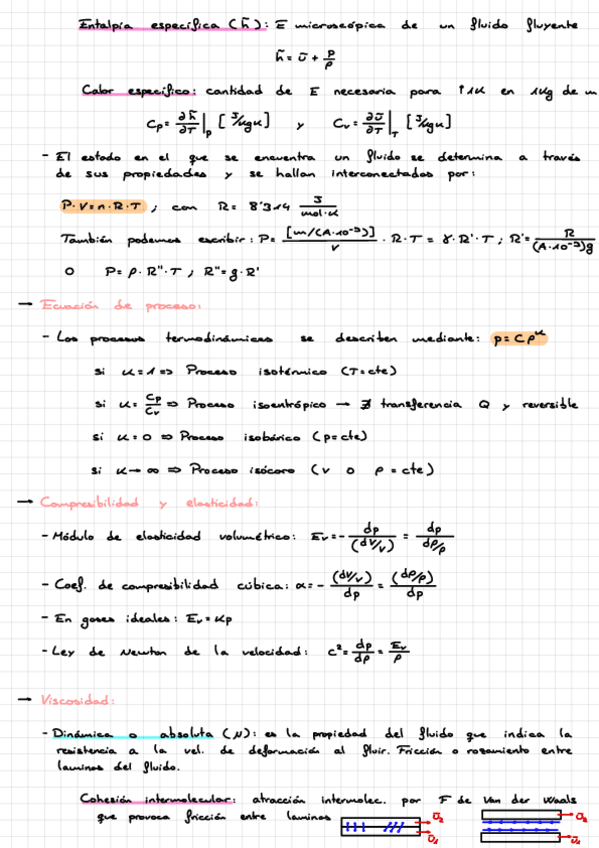 Entalpía específica (h̃): E microscópica de un fluido fluyente
h̃ = ũ + p/ρ
Calor específico: cantidad de E necesaria para ↑1K en 1Kg de m
Cp = ∂h̃/∂T |p [J/kgK] y Cv = ∂ũ/∂T |T [J/kgK]
- El estado en el que se encuentra un fluido se determina a través
de sus propiedades y se hallan interconectados por:
P·V=n·R·T ; con R = 8'314 J/mol·K
También podemos escribir: P = [m/(A·10⁻³)]/V · R·T = γ·R'·T ; R' = R/(A·10⁻³)g
O P = ρ·R''·T ; R'' = g·R'
→ Ecuación de proceso:
- Los procesos termodinámicos se describen mediante: p = Cρᴷ
si K = 1 ⇒ Proceso isotérmico (T=cte)
si K = Cp/Cv ⇒ Proceso isoentrópico → ∄ transferencia Q y reversible
si K = 0 ⇒ Proceso isobárico (p=cte)
si K → ∞ ⇒ Proceso isócoro (v o ρ = cte)
→ Compresibilidad y elasticidad:
- Módulo de elasticidad volumétrico: Ev = - dp/(dV/V) = dp/dρ/ρ
- Coef. de compresibilidad cúbica: α = - (dV/V)/dp = (dρ/ρ)/dp
- En gases ideales: Ev = Kp
- Ley de Newton de la velocidad: c² = dp/dρ = Ev/ρ
→ Viscosidad:
- Dinámica o absoluta (μ): es la propiedad del fluido que indica la
resistencia a la vel. de deformación al fluir. Fricción o rozamiento entre
laminas del fluido.
Cohesión intermolecular: atracción intermolec. por F de Van der Waals
que provoca fricción entre laminas
ū₂ ū₂
ū₁ ū₁